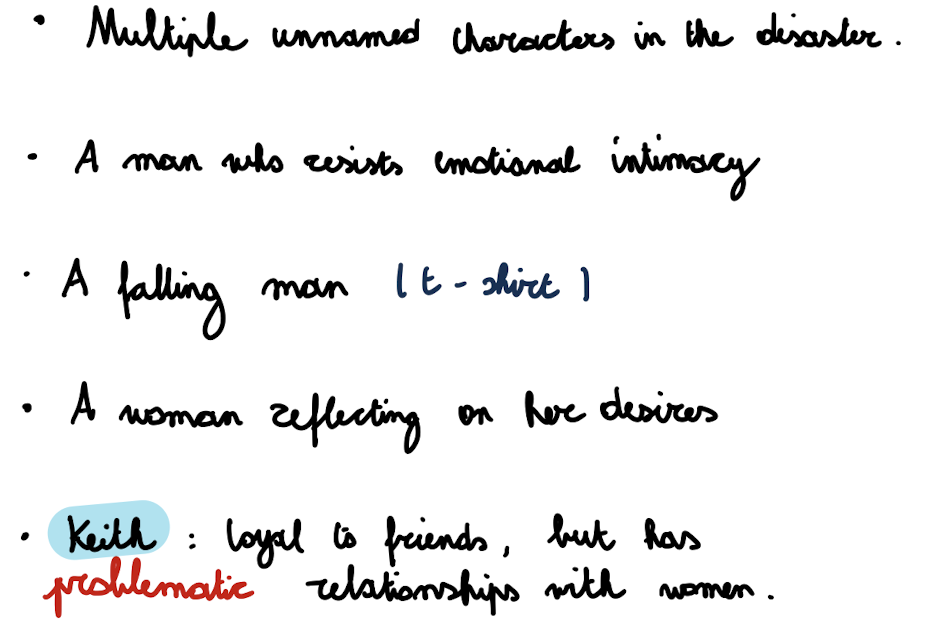 • Multiple unnamed characters in the disaster.
• A man who resists emotional intimacy
• A falling man (t-shirt)
• A woman reflecting on her desires
• Keith : loyal to friends, but has
problematic relationships with women.